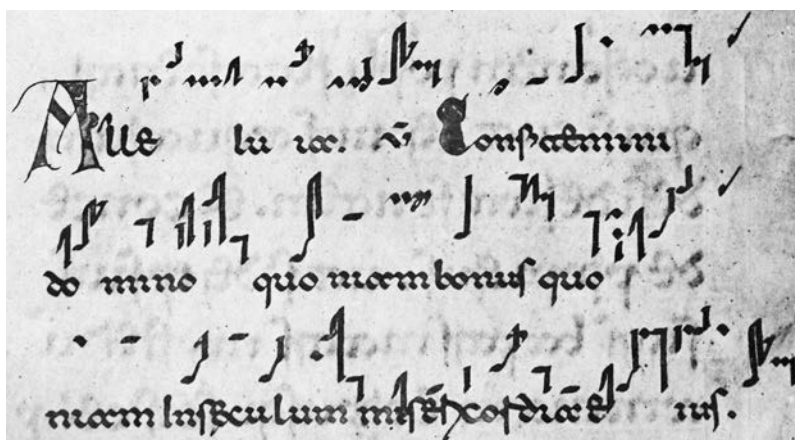 Alle lu ia. v̄ Confitemini
do mino quō niam bonus quo
niam In sęculum misericordia ē ius.